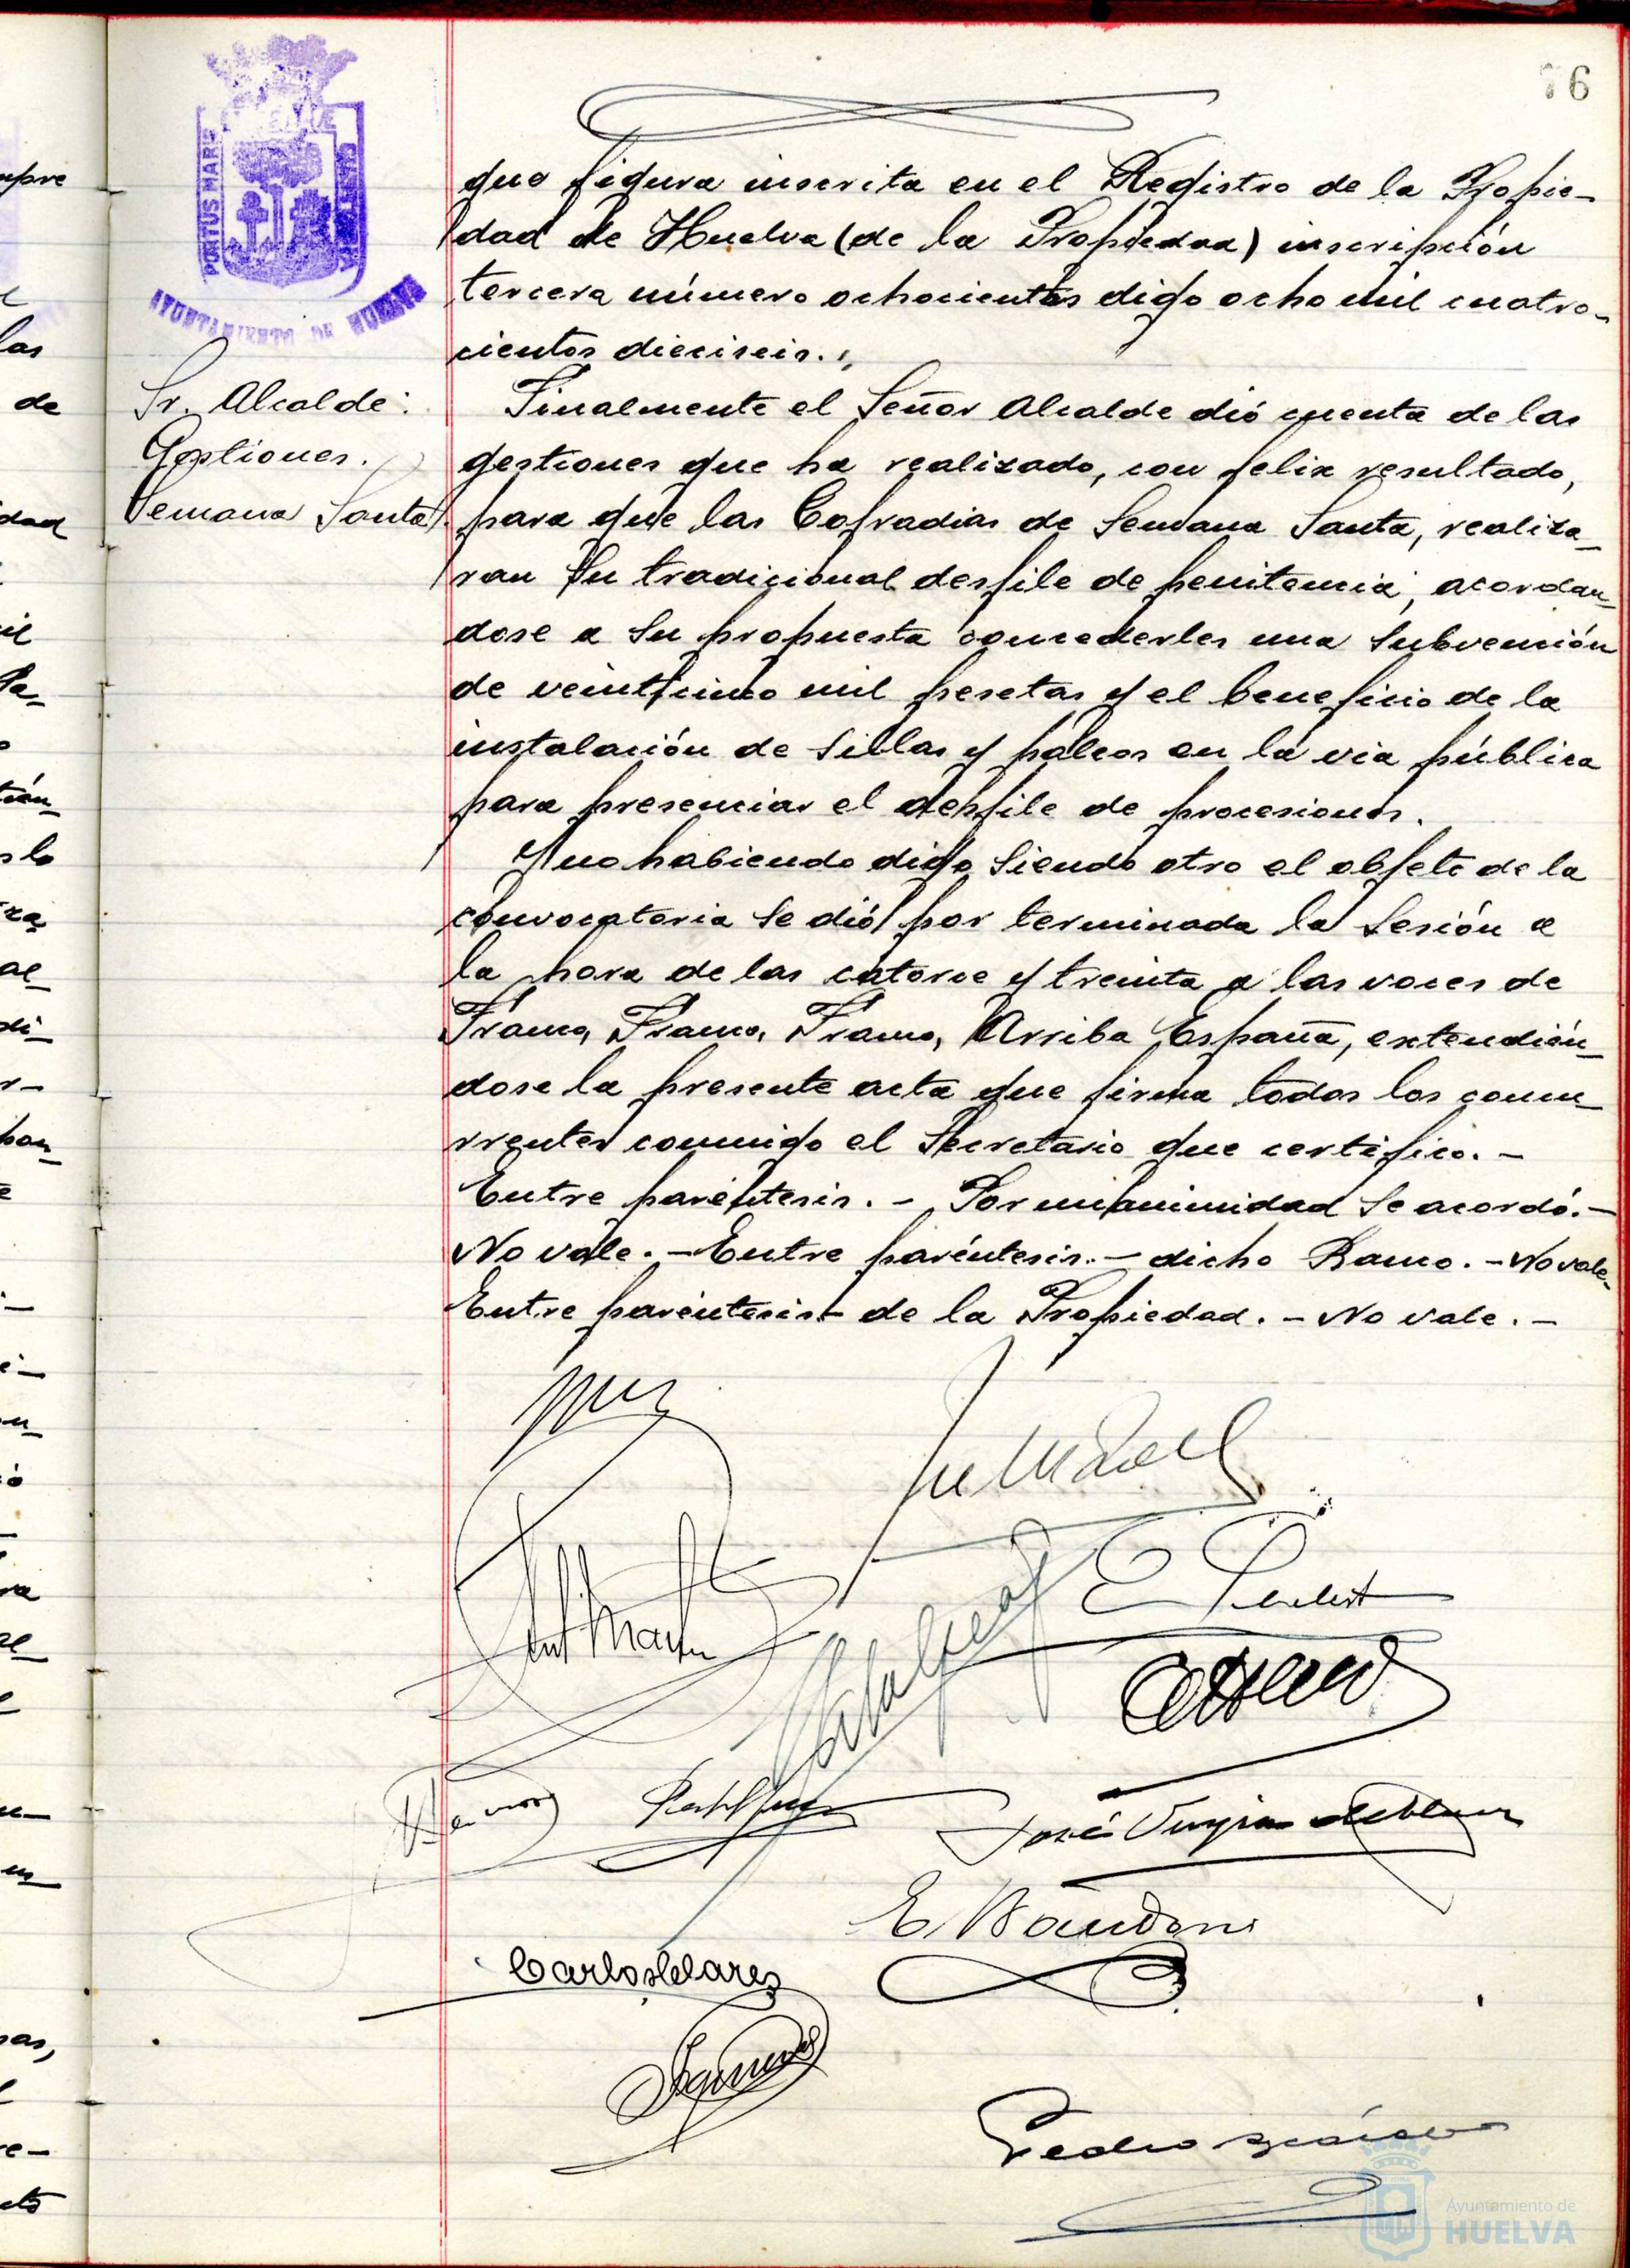 76
PORTUS MARIS
AYUNTAMIENTO DE HUELVA
que figura inscrita en el Registro de la Propie-
dad de Huelva (de la Propiedad) inscripción
tercera número ochocientos digo ocho mil cuatro-
cientos dieciseis.
Sr. Alcalde:
Gestiones.
Semana Santa.
Finalmente el Señor Alcalde dió cuenta de las
gestiones que ha realizado, con felix resultado,
para que las Cofradias de Semana Santa, realiza-
ran su tradicional desfile de penitencia, acordan-
dose a su propuesta concederles una subvención
de veinticinco mil pesetas y el beneficio de la
instalación de sillas y palcos en la via pública
para presenciar el desfile de procesiones.
Y no habiendo digo siendo otro el objeto de la
convocatoria se dió por terminada la sesión a
la hora de las catorce y treinta a las voces de
Franco, Franco, Franco, Arriba España, extendién-
dose la presente acta que firma todos los concu-
rrentes conmigo el Secretario que certifico. -
Entre paréntesis. - Por unanimidad se acordó. -
No vale. - Entre paréntesis. - dicho Ramo. - No vale.
Entre paréntesis - de la Propiedad. - No vale. -
José
Carlos
Pedro
Ayuntamiento de
HUELVA